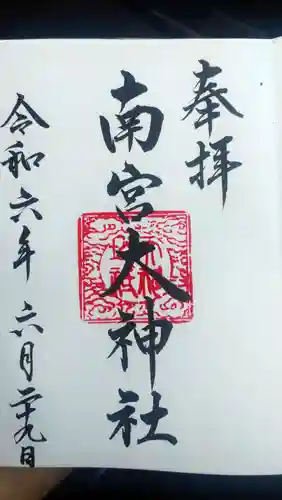 奉拝
南宮大神社
令和六年六月二十九日